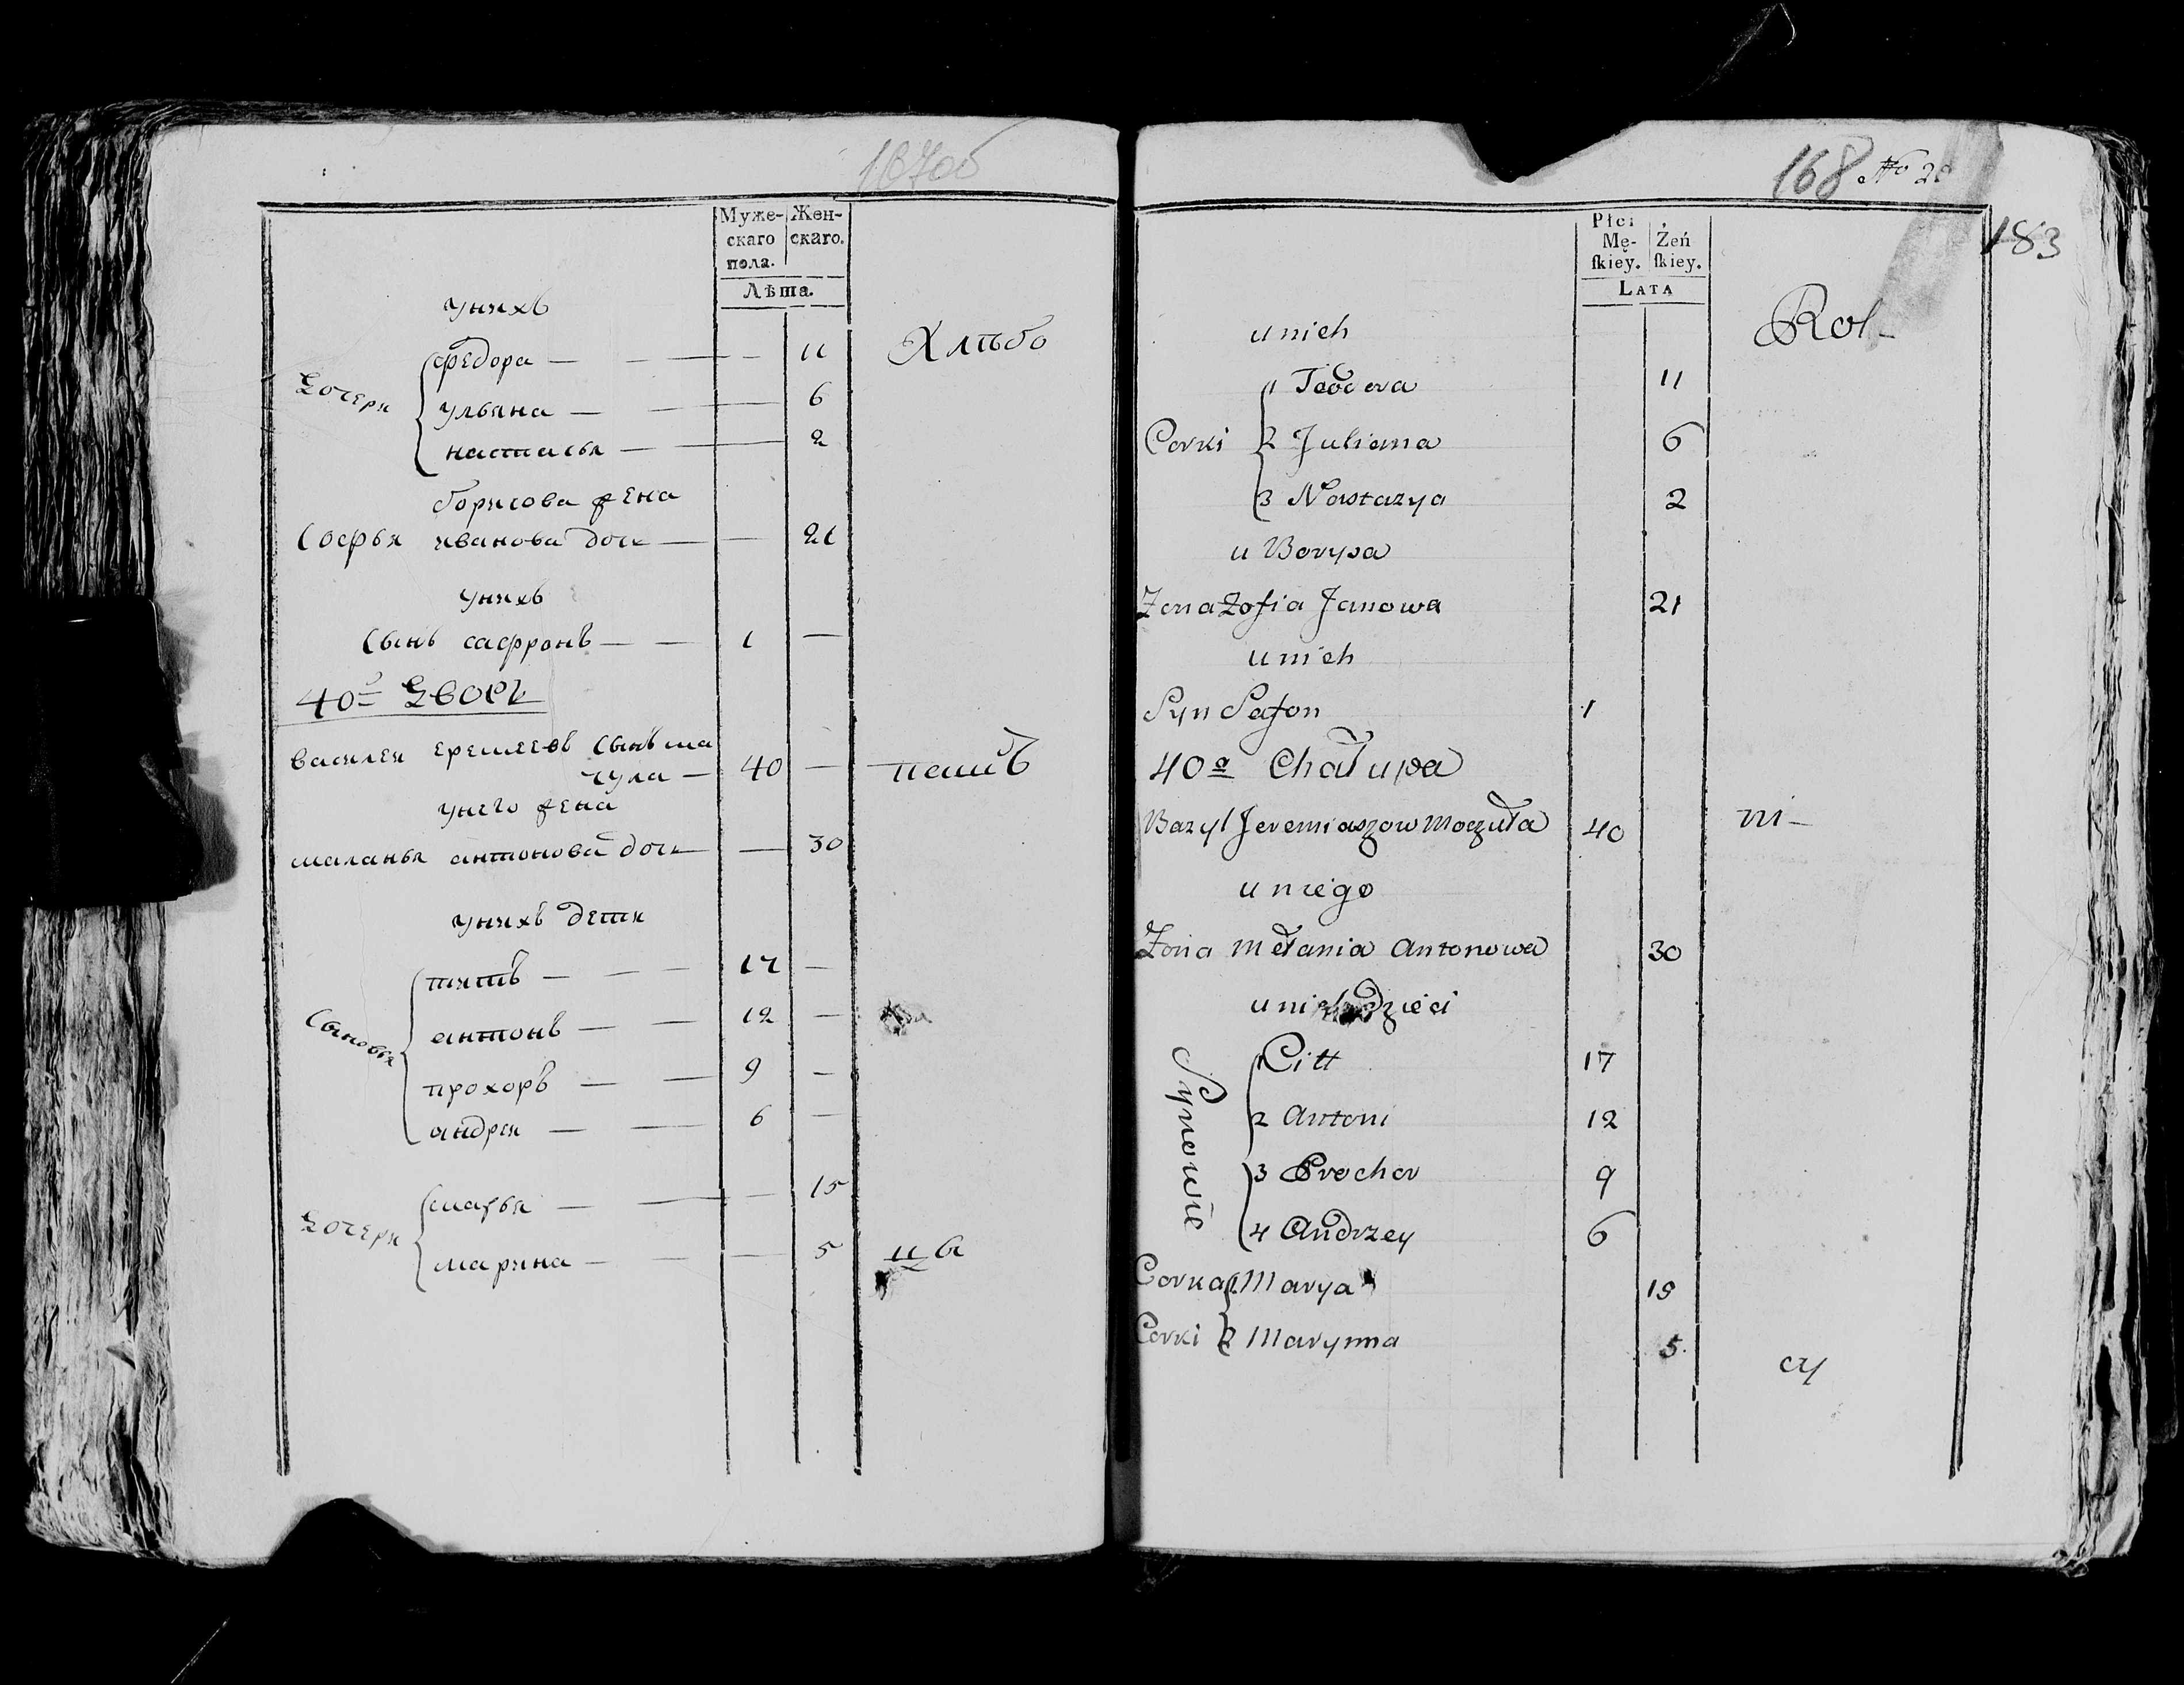 167об
Муже-
скаго
пола.
Жен-
скаго.
Лѣта.
унихъ
Дочери
федора — 11
ульяна — 6
настасья — 2
Хлѣбо
борисова жена
Софья иванова доч — 21
унихъ
Сынъ сафронъ — 1 —
40й Дворъ
василеи еремеевъ Сынъ ма
чула — 40 —
пашъ
унего жена
маланья антонова доч — 30
унихъ дети
Сыновья
титъ — 17 —
антонъ — 12 —
прохоръ — 9 —
андреи — 6 —
Дочери
марья — 15
марина — 5
цы
168 No 28
183
Płci
Mę-
skiey.
Żeń
skiey.
LATA
u nich
Corki
1 Teodora 11
2 Juliana 6
3 Nastazya 2
Rol-
u Borysa
Zona Zofia Janowa 21
u nich
Syn Safon 1
40a Chałupa
Bazyl Jeremiaszow Moczuła 40
ni-
u niego
Zona Mełania Antonowa 30
u nich dzieci
Synowie
1 Citt 17
2 Antoni 12
3 Prochor 9
4 Andrzey 6
Corka 1 Marya 15
Corki 2 Marynna 5
cy